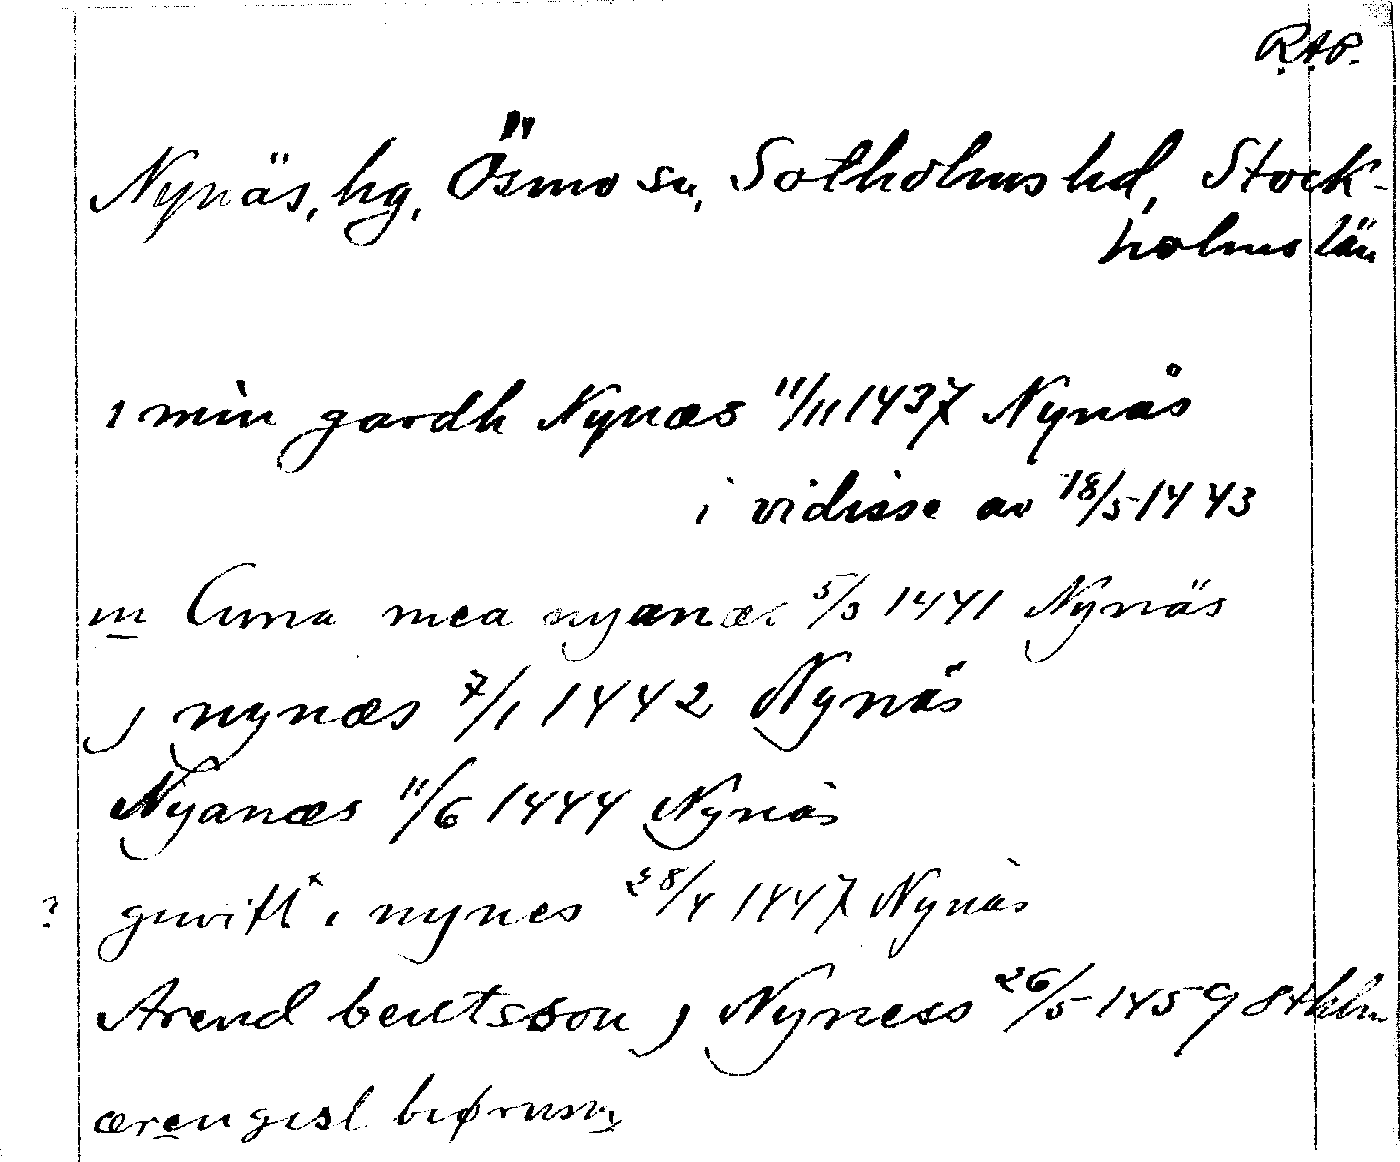 R.A.P.
Nynäs, hg, Ösmo sn, Sotholms hd, Stock-
holms län
i min gardh Nynæs 11/11 1437 Nynäs
i vidisse av 18/5 1443
in Curia mea nyanæs 5/3 1441 Nynäs
j nynæs 7/1 1442 Nynäs
Nyanæs 11/6 1444 Nynäs
? i nynes 28/4 1447 Nynäs
Arend bentsson j Nyness 26/5 1459 Sthlm
ærengisl